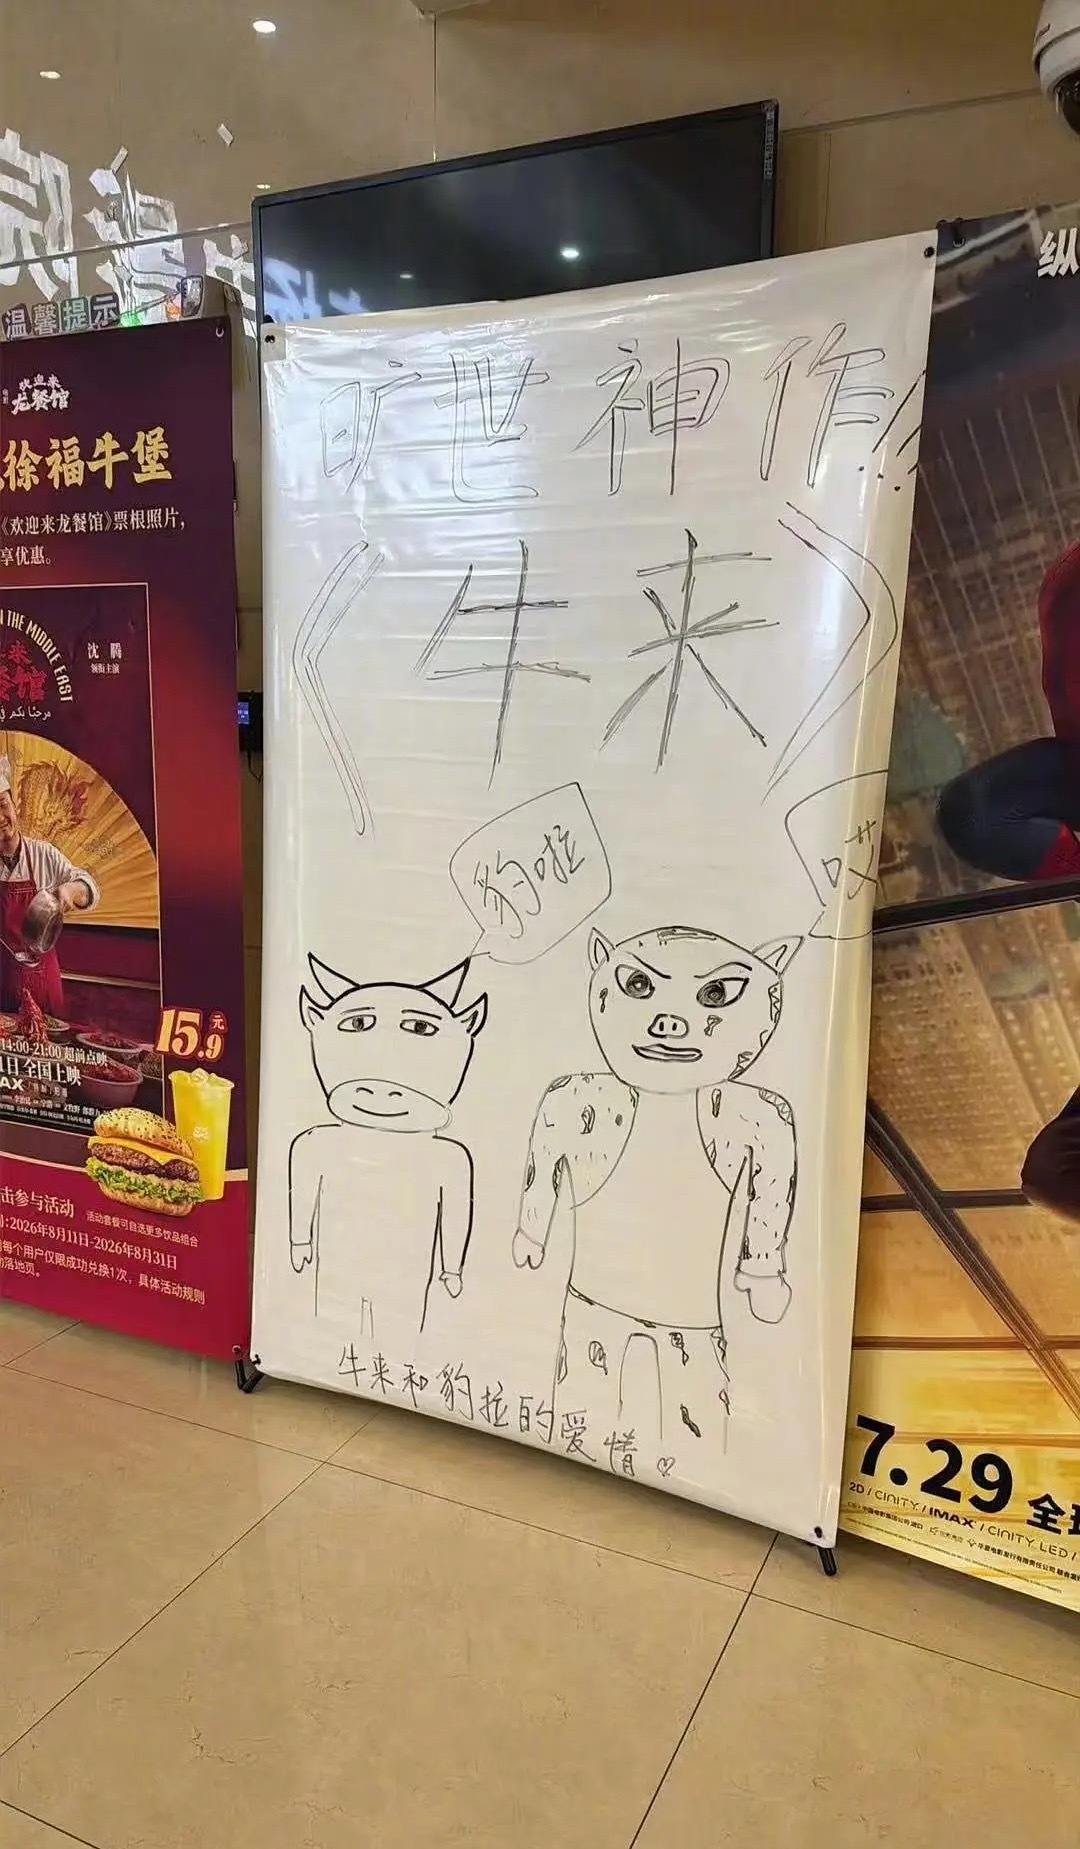 温馨提示
欢迎来
龙餐馆
徐福牛堡
《欢迎来龙餐馆》票根照片，
享优惠。
N THE MIDDLE EAST
沈腾
领衔主演
15.9元
14:00-21:00 超前点映
1日 全国上映
击参与活动
活动套餐可自选更多饮品组合
:2026年8月11日-2026年8月31日
每个用户仅限成功兑换1次，具体活动规则
落地页。
旷世神作
《牛来》
豹啦
哎
牛来和豹拉的爱情♡
纵
7.29 全球
2D / CINITY / IMAX / CINITY LED /